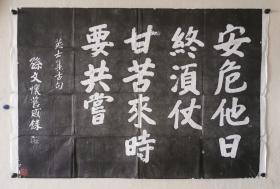 安危他日
終須仗
甘苦來時
要共嘗
英士集古句
孫文懷舊感錄